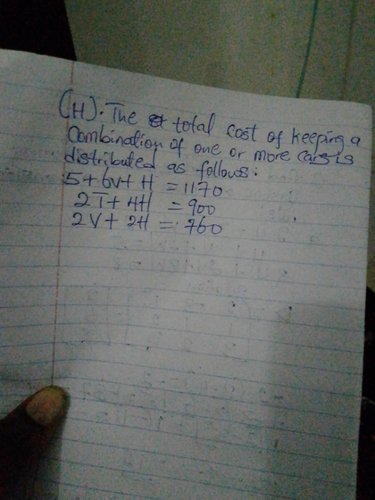 (H). The total cost of keeping a
Combination of one or more cars is
distributed as follows:
5+6V+H = 1170
2T+4H = 900
2V+2H = 760